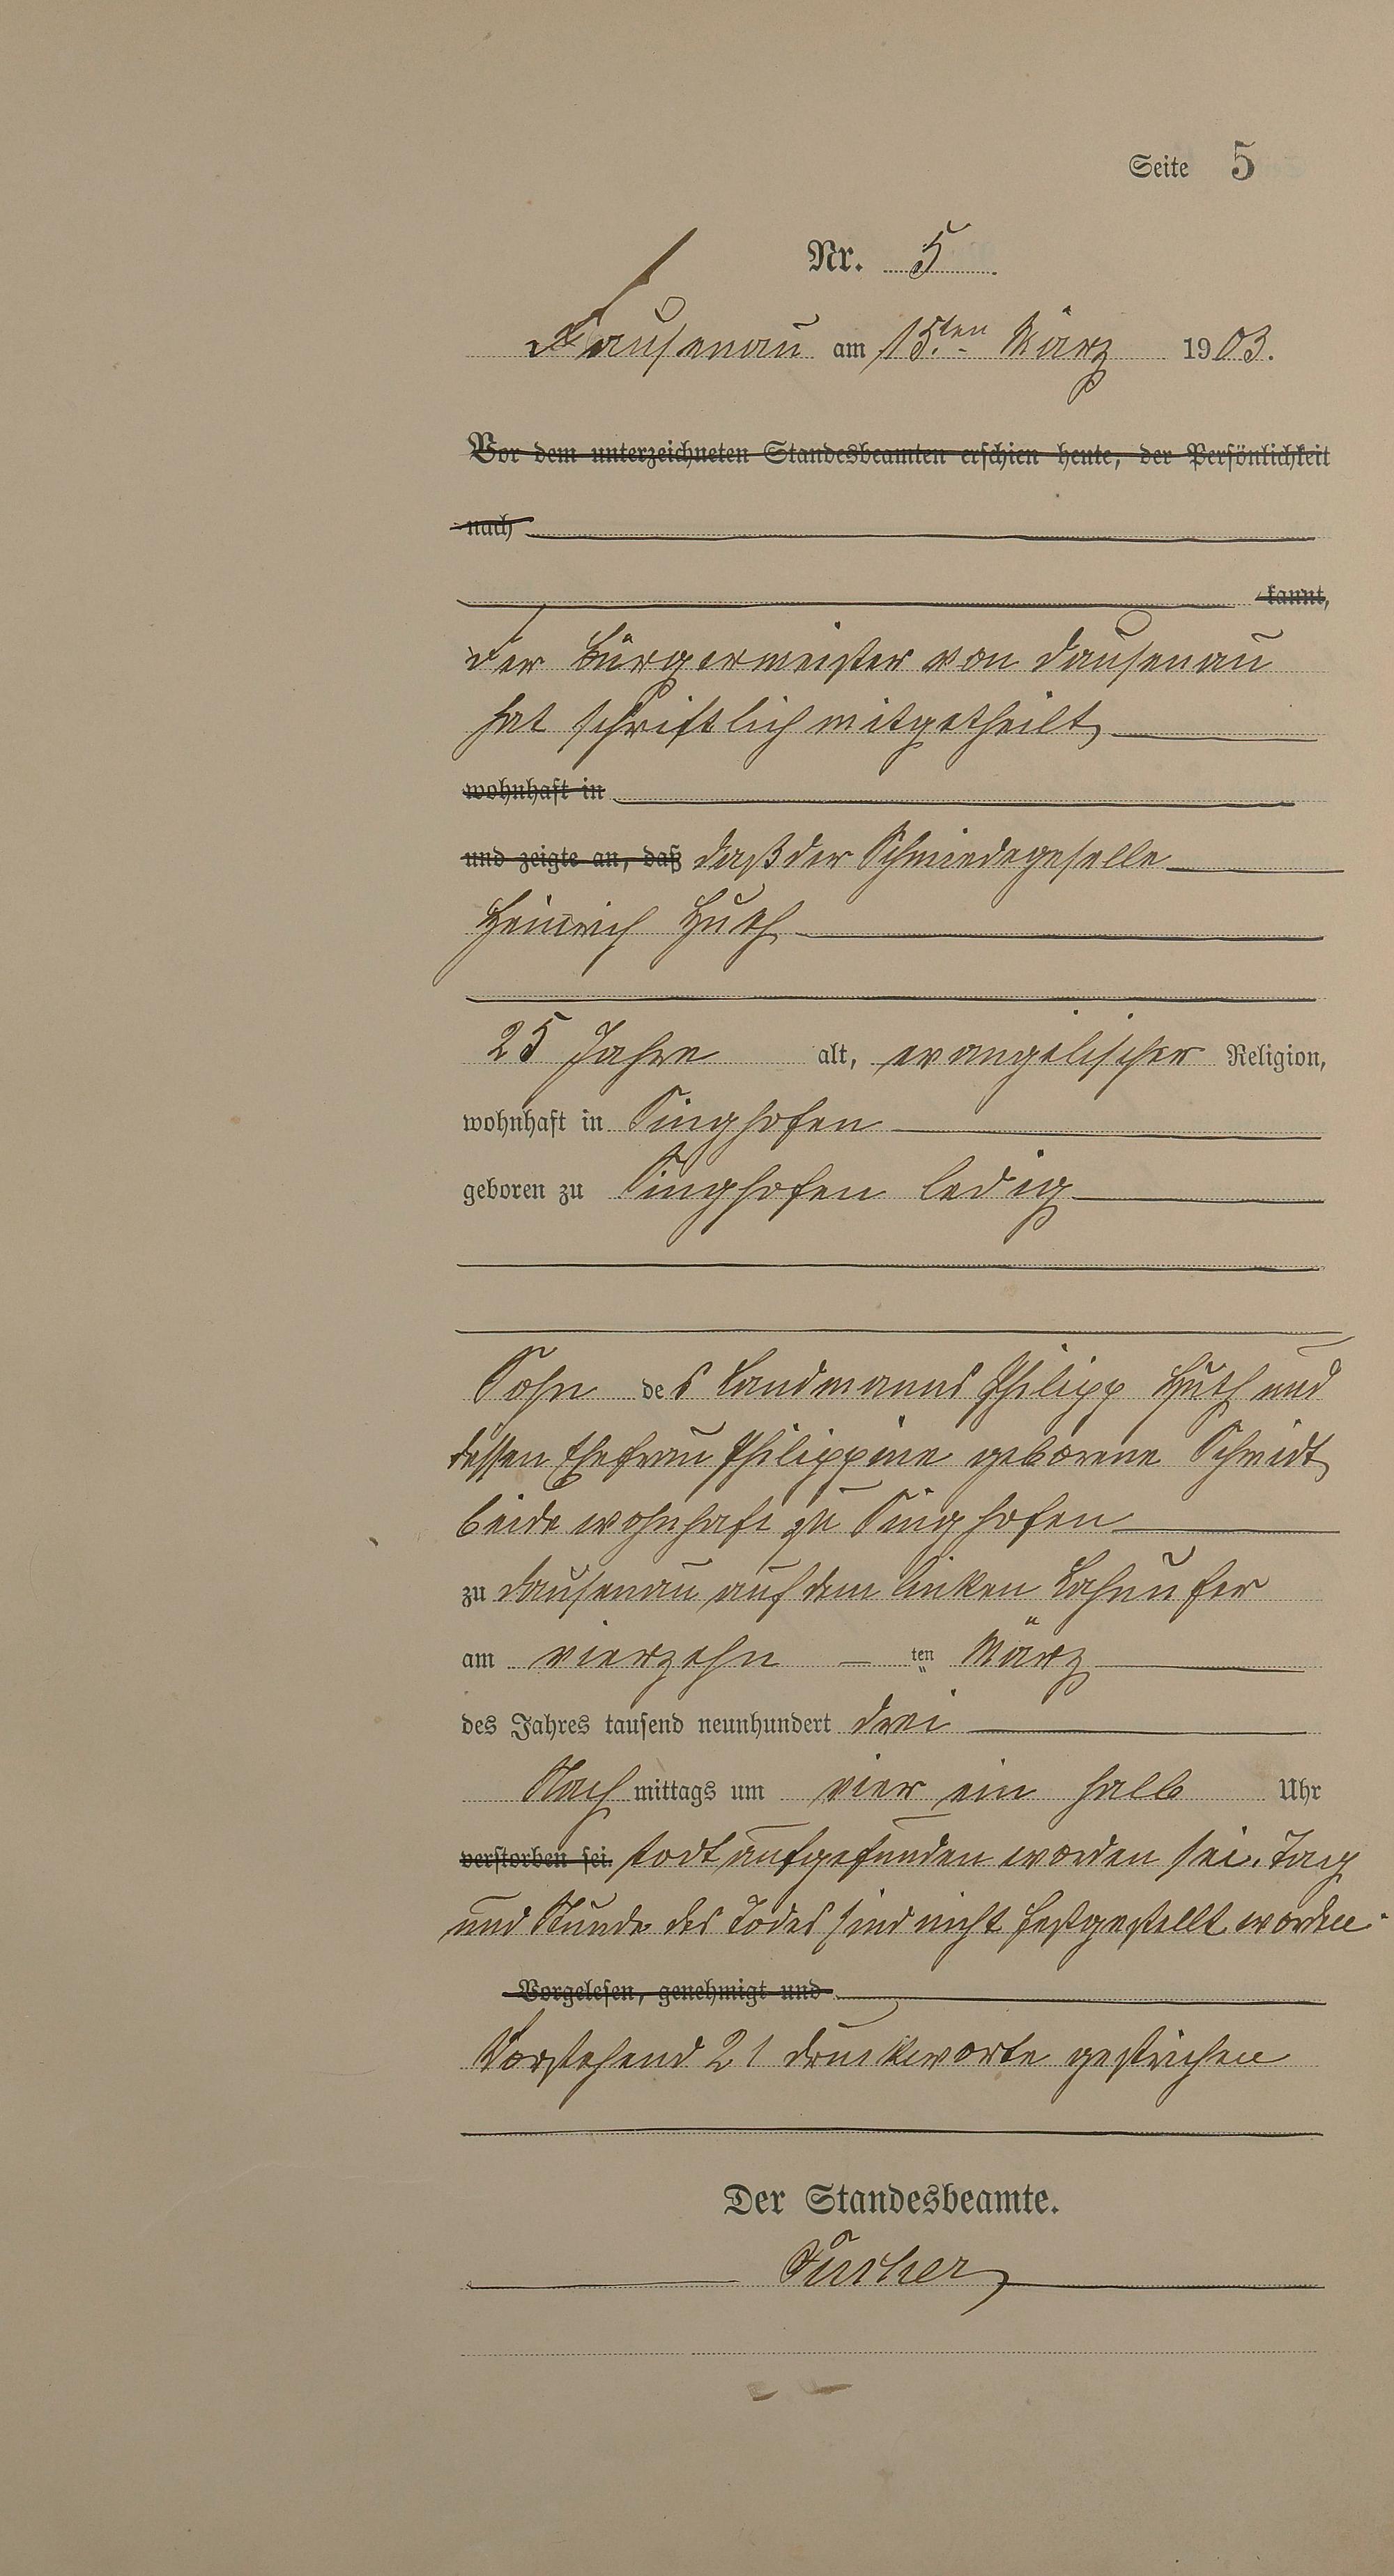 Seite 5
Nr. 5
Dausenau am 15.ten März 1903.
Vor dem unterzeichneten Standesbeamten erschien heute, der Persönlichkeit
nach
kannt,
der Bürgermeister von Dausenau
hat schriftlich mitgetheilt,
wohnhaft in
und zeigte an, daß daß der Schmiedegeselle
Heinrich Huth
25 Jahre alt, evangelischer Religion,
wohnhaft in Singhofen
geboren zu Singhofen ledig
Sohn des Landmanns Philipp Huth und
dessen Ehefrau Philippine geborene Schmidt,
beide wohnhaft zu Singhofen
zu Dausenau auf dem linken Lahnufer
am vierzehn ten März
des Jahres tausend neunhundert drei
Nach mittags um vier ein halb Uhr
verstorben sei. todt aufgefunden worden sei. Tag
und Stunde des Todes sind nicht festgestellt worden.
Vorgelesen, genehmigt und
Vorstehend 21 Druckworte gestrichen
Der Standesbeamte.